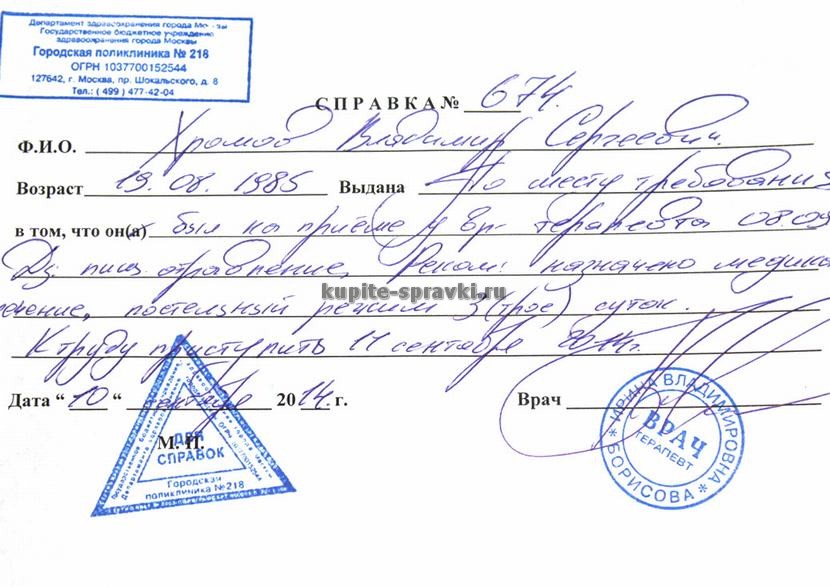 Департамент здравоохранения города Москвы
Государственное бюджетное учреждение
здравоохранения города Москвы
Городская поликлиника № 218
ОГРН 1037700152544
127642, г. Москва, пр. Шокальского, д. 8
Тел.: ( 499 ) 477-42-04
СПРАВКА № 674.
Ф.И.О. Хромов Владимир Сергеевич.
Возраст 19.08.1985 Выдана По месту требования
в том, что он(а) был на приёме у вр- терапевта 08.09
Дз: пищ. отравление. Реком: назначено медика
ечение, постельный режим 3 (трое) суток.
kupite-spravki.ru
К труду приступить 11 сентября 2014г.
Дата “ 10 “ сентября 2014 г. Врач
М. П.
ДЛЯ
СПРАВОК
Городская
поликлиника №218
ИРИНА ВЛАДИМИРОВНА
ВРАЧ
ТЕРАПЕВТ
БОРИСОВА